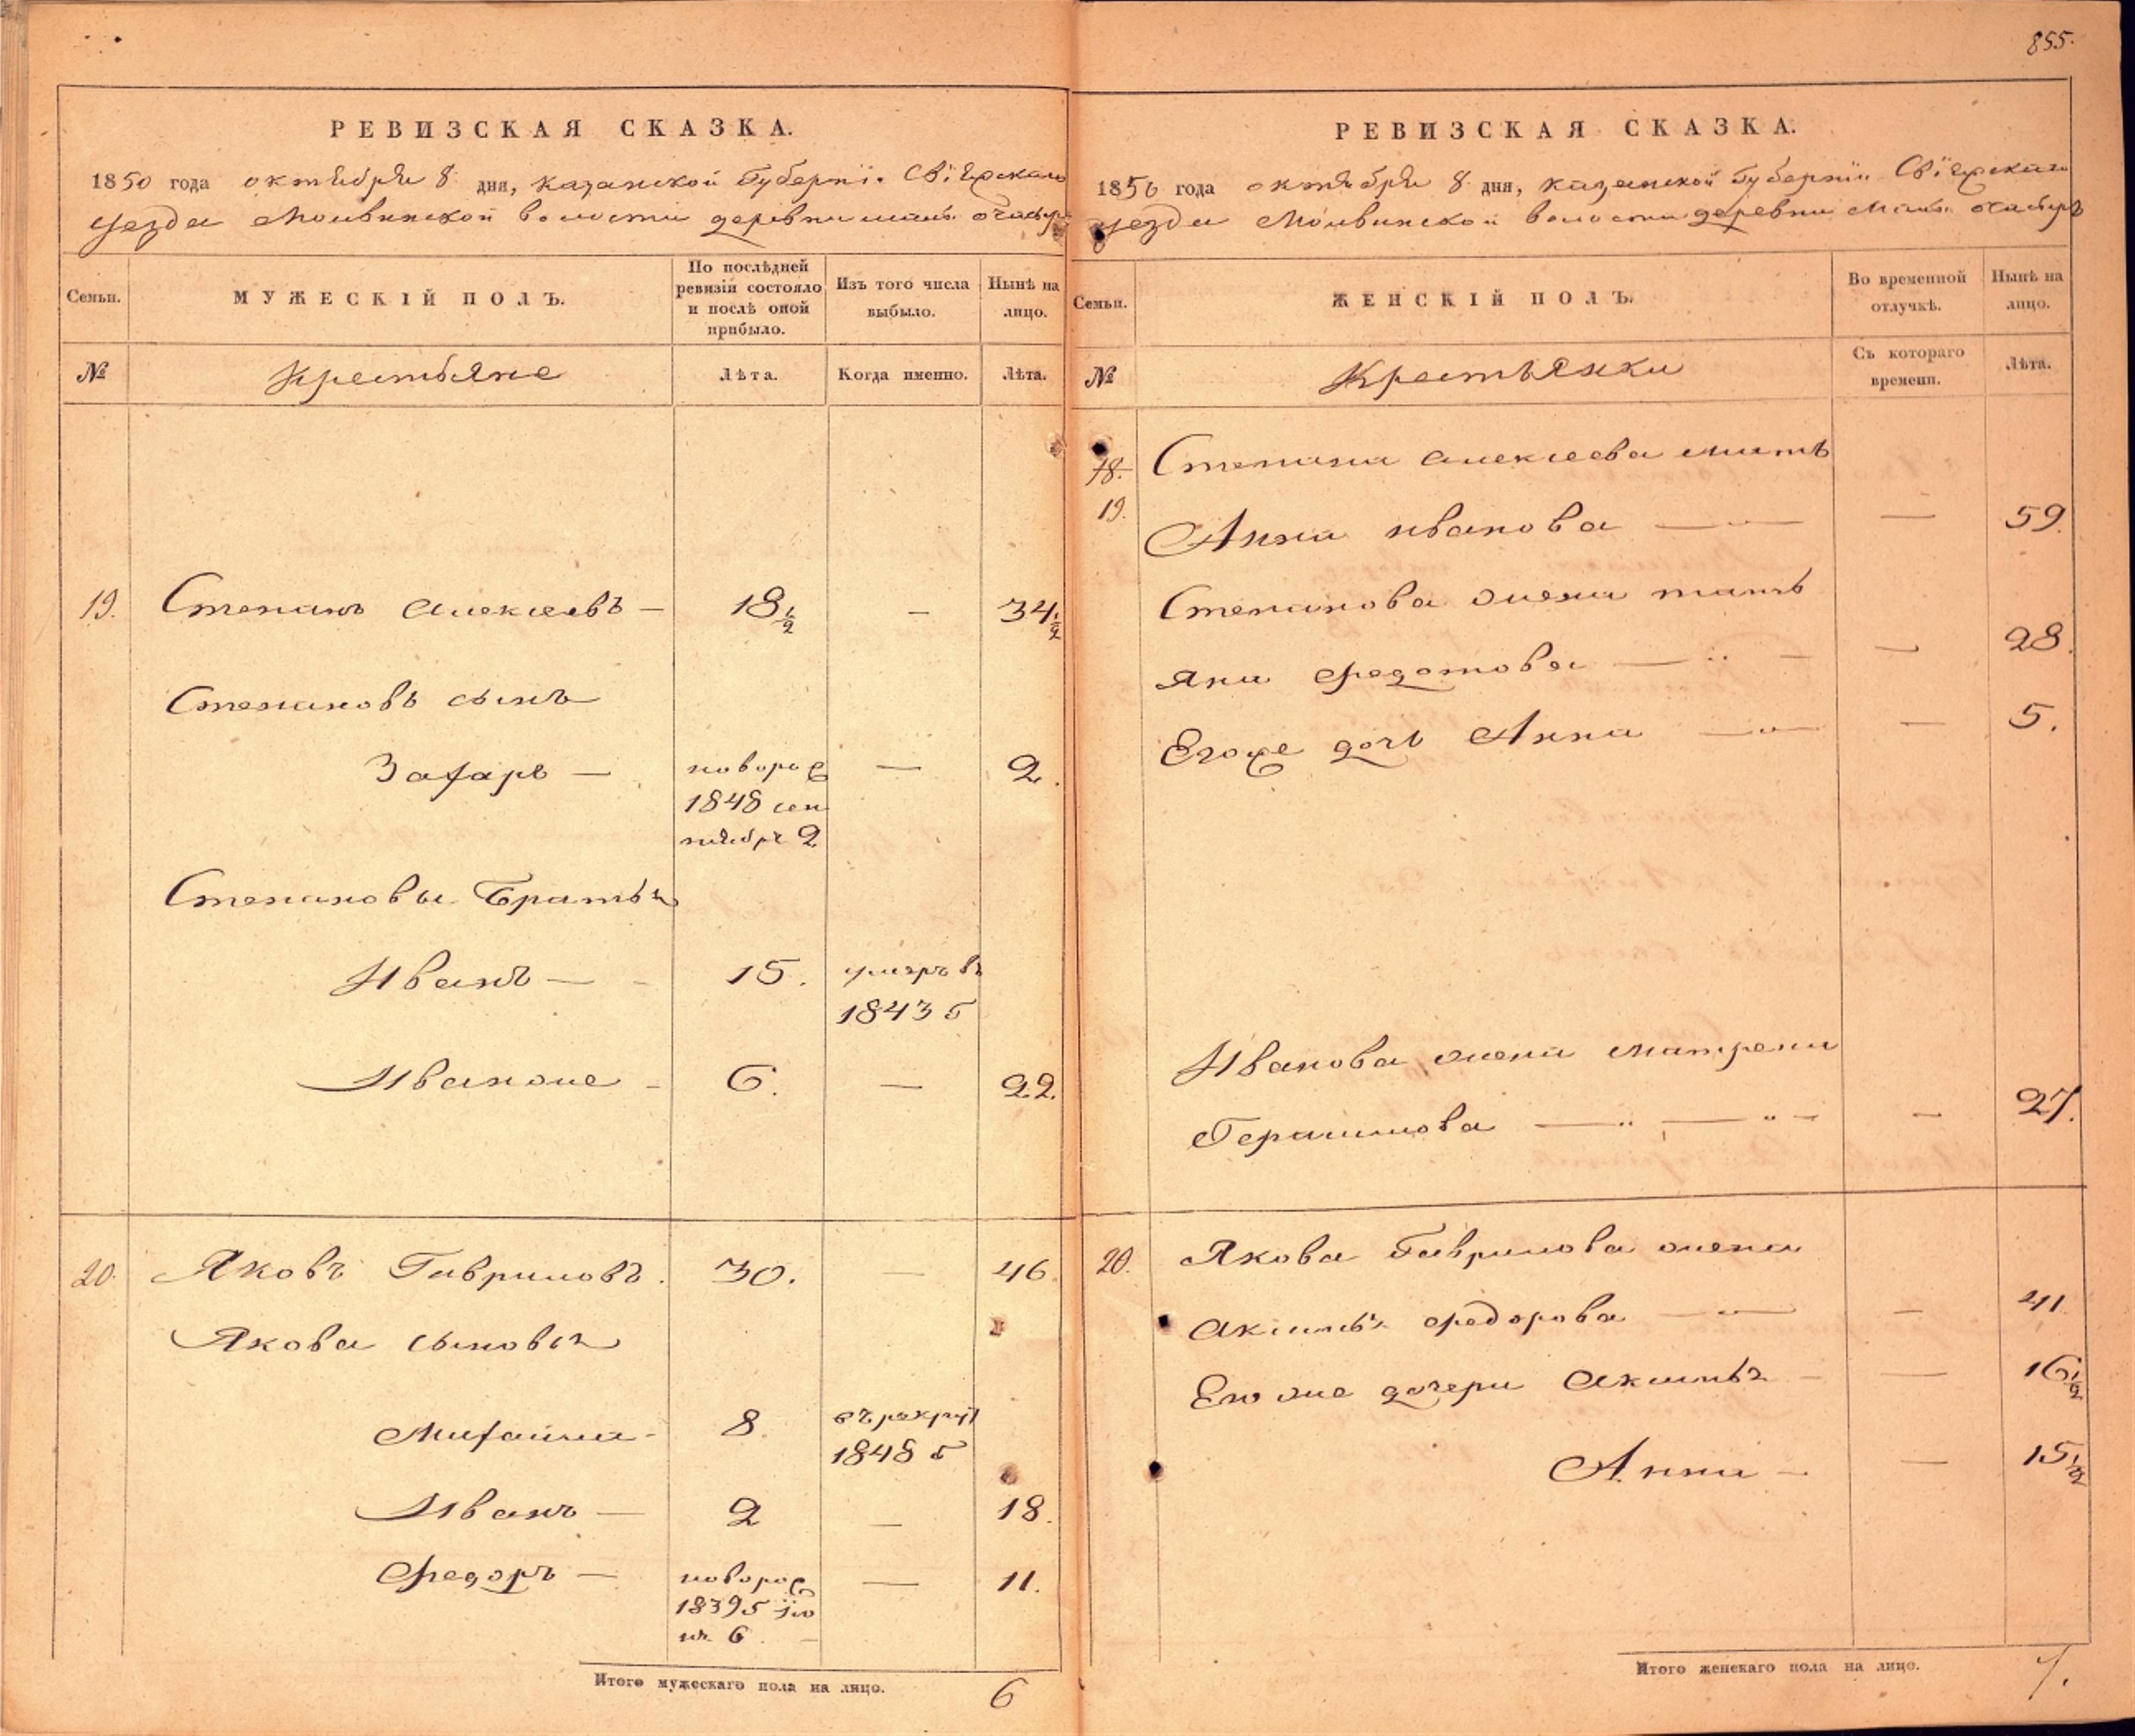 855.
РЕВИЗСКАЯ СКАЗКА.
1850 года октября 8 дня, казанской Губерніи Свіяжскаго
уезда Молвинской волости деревни малы очасыръ
Семьи.
МУЖЕСКІЙ ПОЛЪ.
По послѣдней
ревизіи состояло
и послѣ оной
прибыло.
Изъ того числа
выбыло.
Нынѣ на
лицо.
№
Крестьяне
Лѣта.
Когда именно.
Лѣта.
19. Степанъ Алексеевъ — 18 1/2 — 34 1/2
Степановъ сынъ
Захаръ — новорож — 2.
1848 сен
тября 2
Степановы Братья
Иванъ — 15. умеръ въ
1843 г
Иванже — 6. — 22.
20. Яковъ Гавриловъ. 30. — 46.
Якова сыновья
Михайла - 8. въ рекрут
1848 г
Иванъ — 2 — 18.
Федоръ — новорож — 11.
1839 г ію
ня 6
Итого мужескаго пола на лицо. 6
РЕВИЗСКАЯ СКАЗКА.
1850 года октября 8 дня, казанской Губерніи Свіяжскаго
уезда Молвинской волости деревни малы очасыръ
Семьи.
ЖЕНСКІЙ ПОЛЪ.
Во временной
отлучкѣ.
Нынѣ на
лицо.
№
Крестьянки
Съ котораго
времени.
Лѣта.
18. Степана Алексеева мать
19. Анна иванова — — 59.
Степанова жена тать
яна федотова — — 28.
Егоже дочь Анна — — 5.
Иванова жена матрена
Герасимова — — 27.
20. Якова Гаврилова жена
Аксинья федорова — — 41
Его же дочери Аксинья — — 16 1/2
Анна — — 15 1/2
Итого женскаго пола на лицо. 7.